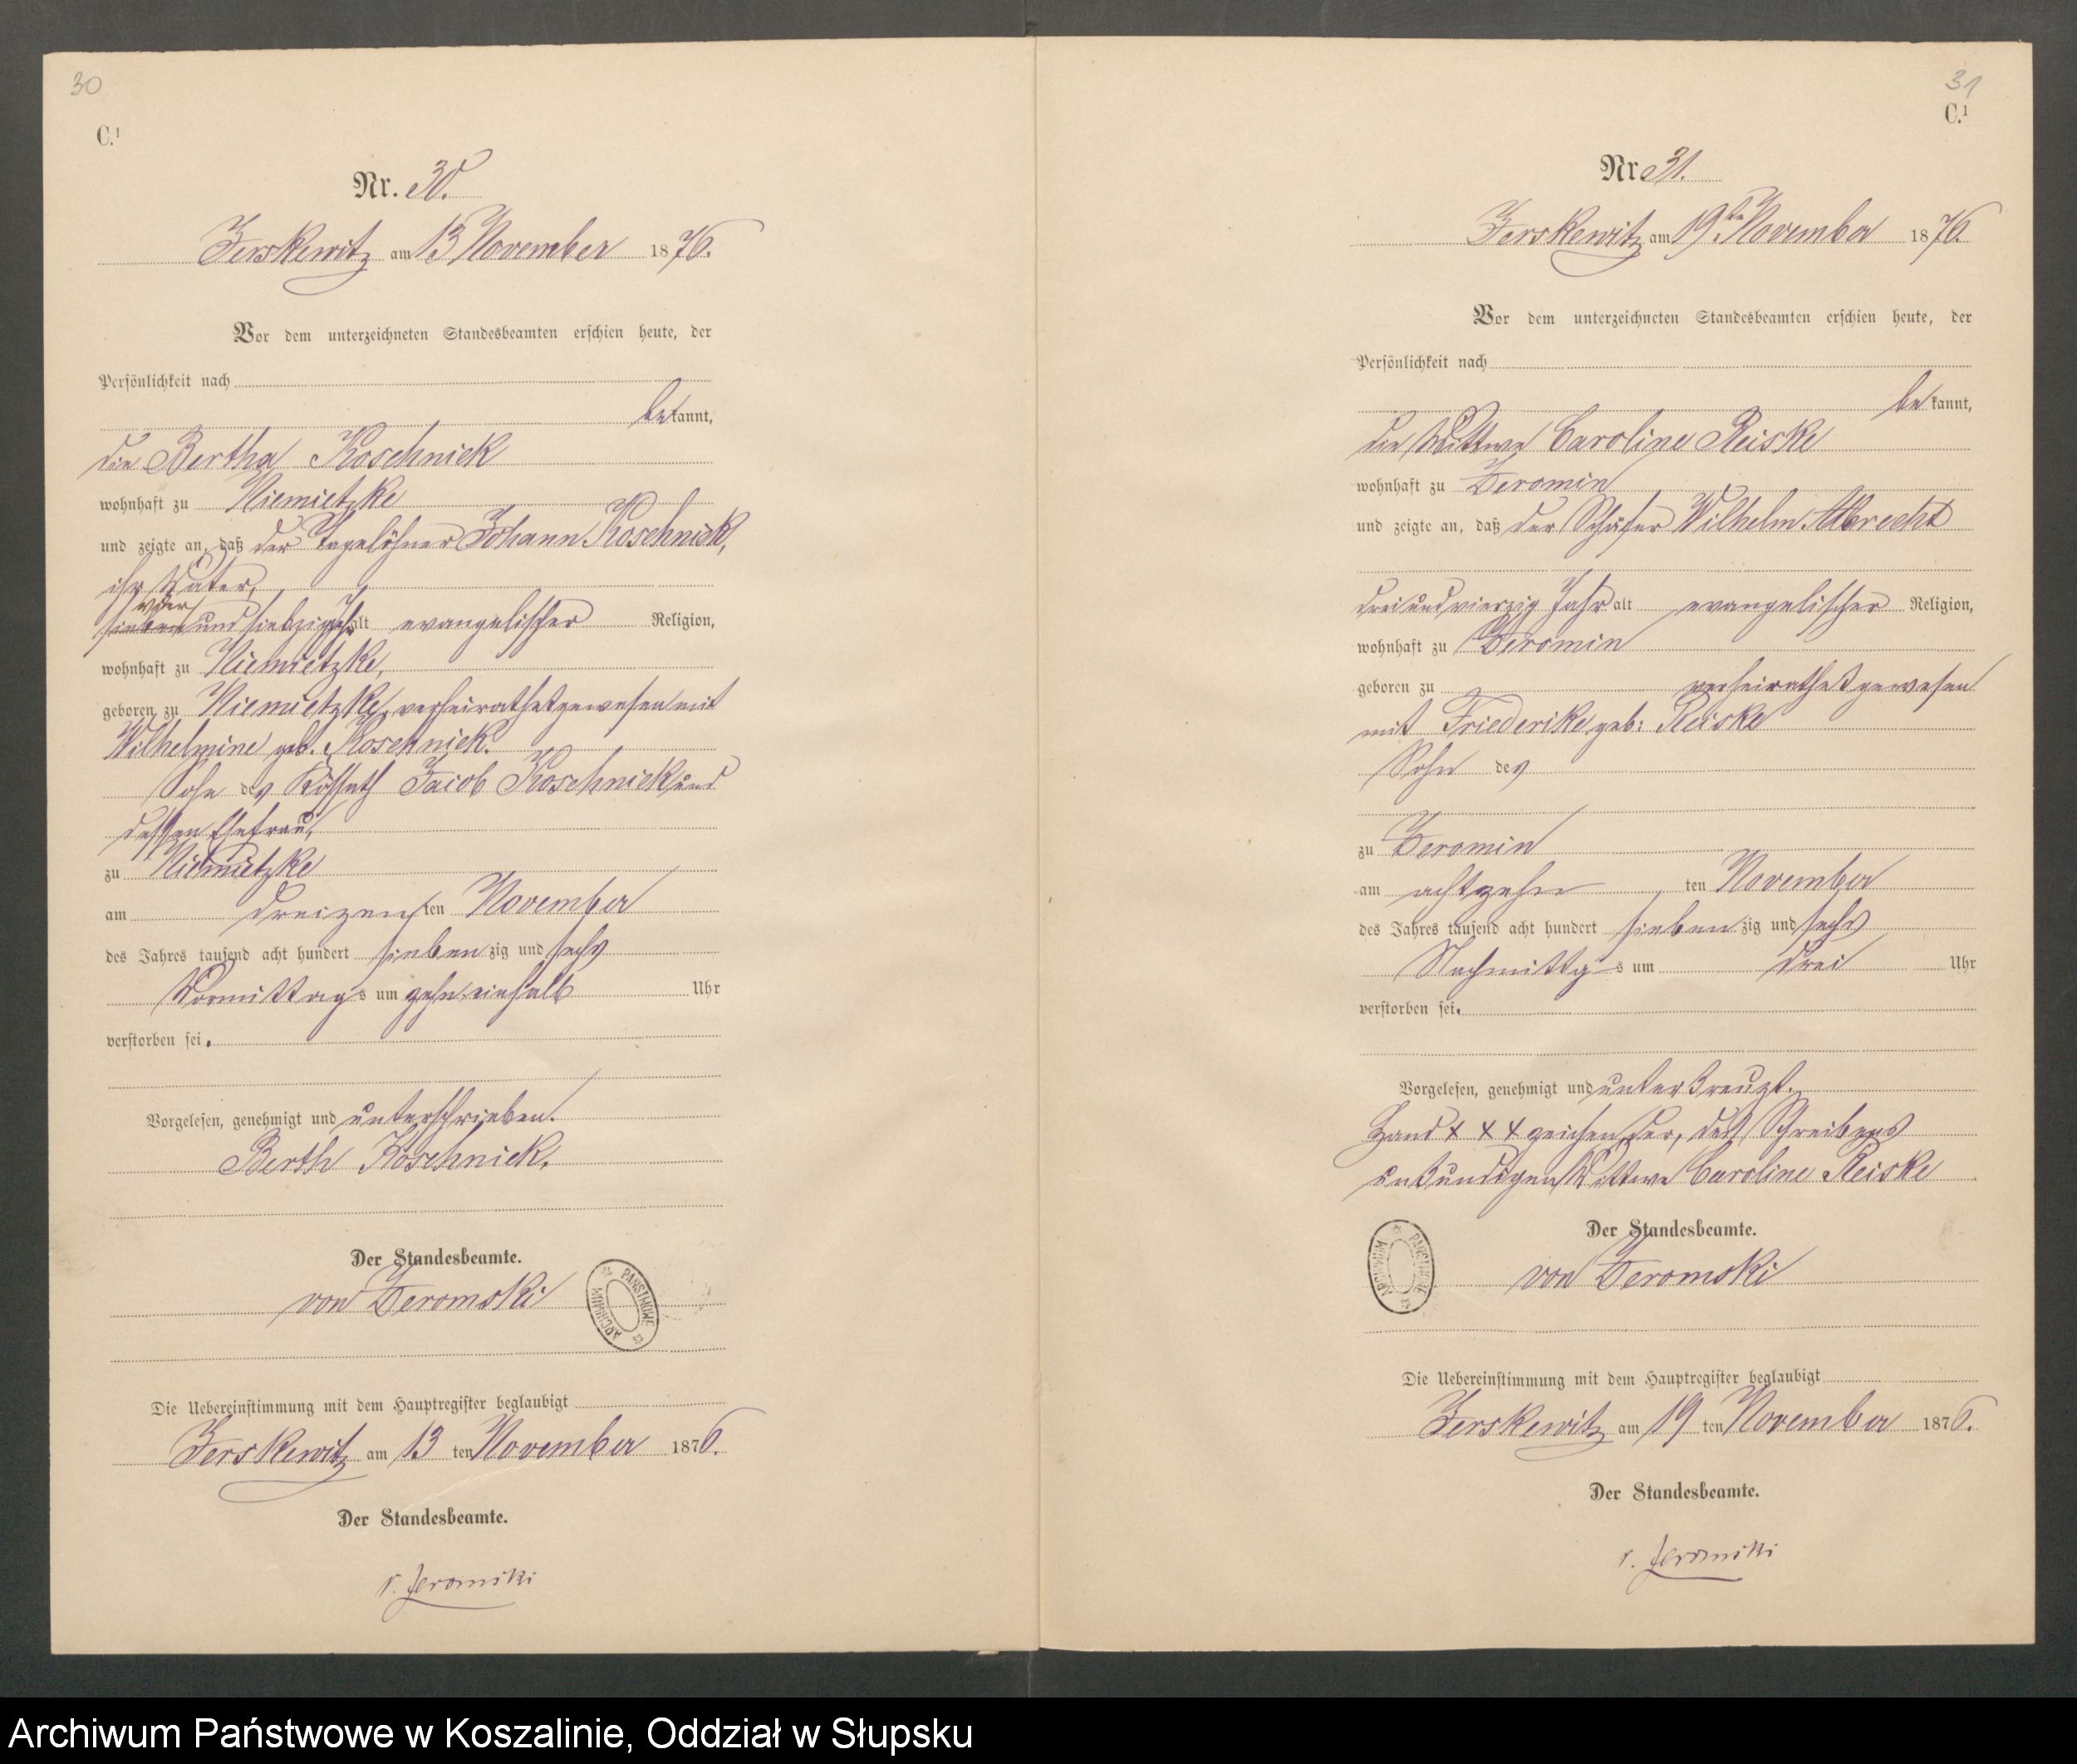 30
C.¹
Nr. 30.
Zerskewitz am 13 November 1876.
Vor dem unterzeichneten Standesbeamten erschien heute, der
Persönlichkeit nach
bekannt,
die Bertha Koschnick
wohnhaft zu Niemietzke
und zeigte an, daß der Tagelöhner Johann Koschnick,
ihr Vater,
vier
sieben und siebzig Jahr alt evangelischer Religion,
wohnhaft zu Niemietzke,
geboren zu Niemietzke, verheirathet gewesen mit
Wilhelmine geb. Koschnick.
Sohn des Kossath Jacob Koschnick und
dessen Ehefrau,
zu Niemietzke
am dreizehnten November
des Jahres tausend acht hundert siebenzig und sechs
Vormittags um zehn einhalb Uhr
verstorben sei.
Vorgelesen, genehmigt und unterschrieben.
Berth Koschnick.
Der Standesbeamte.
von Zeromski
ARCHIWUM PAŃSTWOWE
Die Uebereinstimmung mit dem Hauptregister beglaubigt
Zerskewitz am 13 ten November 1876.
Der Standesbeamte.
v. Zeromski
31
C.¹
Nr. 31.
Zerskewitz am 19ten November 1876.
Vor dem unterzeichneten Standesbeamten erschien heute, der
Persönlichkeit nach
bekannt,
die Wittwe Caroline Reiske
wohnhaft zu Zeromin
und zeigte an, daß der Schäfer Wilhelm Albrecht
drei und vierzig Jahr alt evangelischer Religion,
wohnhaft zu Zeromin
geboren zu verheirathet gewesen
mit Friederike geb: Reiske
Sohn des
zu Zeromin
am achtzehn ten November
des Jahres tausend acht hundert siebenzig und sechs
Nachmittgs um drei Uhr
verstorben sei.
Vorgelesen, genehmigt und unterkreuzt.
Hand + + + zeichen der, des Schreibens
unkundigen Wittwe Caroline Reiske
Der Standesbeamte.
von Zeromski
ARCHIWUM PAŃSTWOWE
Die Uebereinstimmung mit dem Hauptregister beglaubigt
Zerskewitz am 19 ten November 1876.
Der Standesbeamte.
v. Zeromski
Archiwum Państwowe w Koszalinie, Oddział w Słupsku